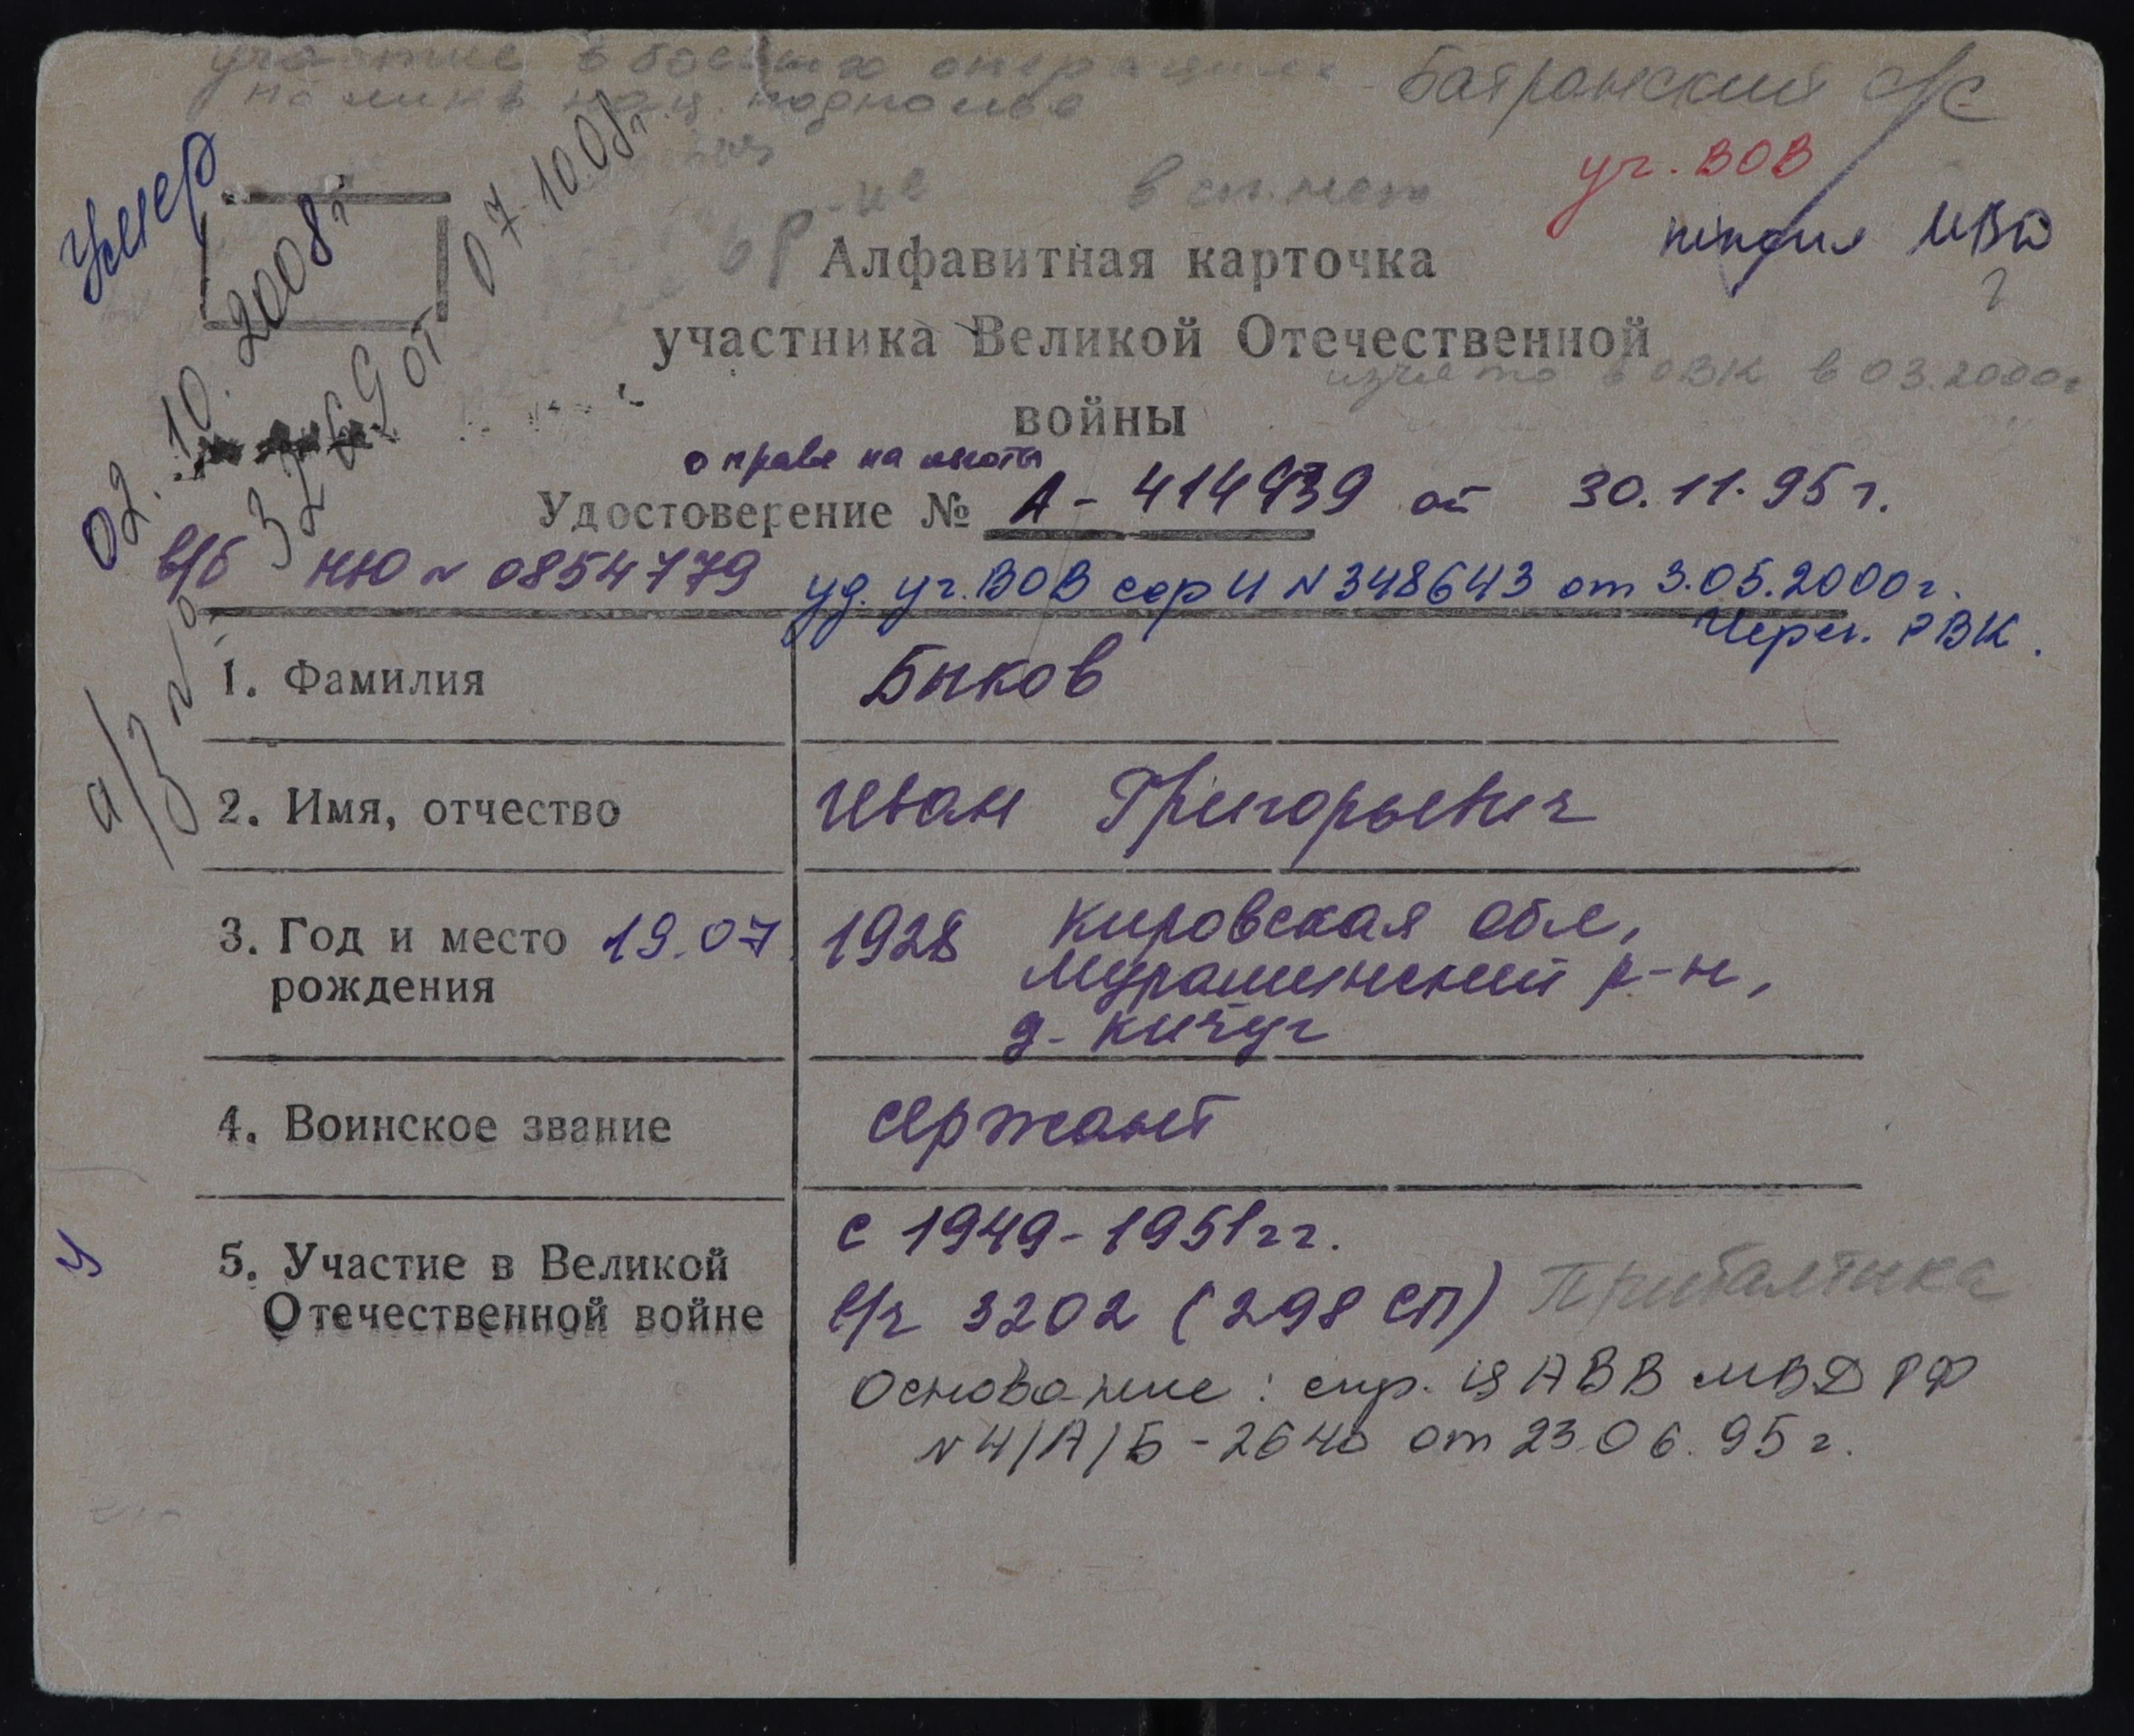 участие в боевых операциях
по ликв нац. подполья
Батранский с/с
уч. ВОВ
пенсия МВД
в сп. нет
Умер
02.10.2008г
а/з № 3269 от 07.10.08г.
Алфавитная карточка
участника Великой Отечественной
войны
изъято в ОВК в 03.2000г
о праве на льготы
Удостоверение № А - 414939 от 30.11.95г.
в/б НЮ № 0854779 уд. уч. ВОВ сер И № 348643 от 3.05.2000г.
Череп. РВК.
1. Фамилия Быков
2. Имя, отчество Иван Григорьевич
3. Год и место рождения 19.07. 1928 Кировская обл,
Мурашинский р-н,
д. Кичуг
4. Воинское звание сержант
5. Участие в Великой Отечественной войне с 1949-1951гг.
в/ч 3202 (298 СП) Прибалтика
Основание: спр. ЦАВВ МВД РФ
№ 4/А/Б - 2640 от 23.06.95г.
у